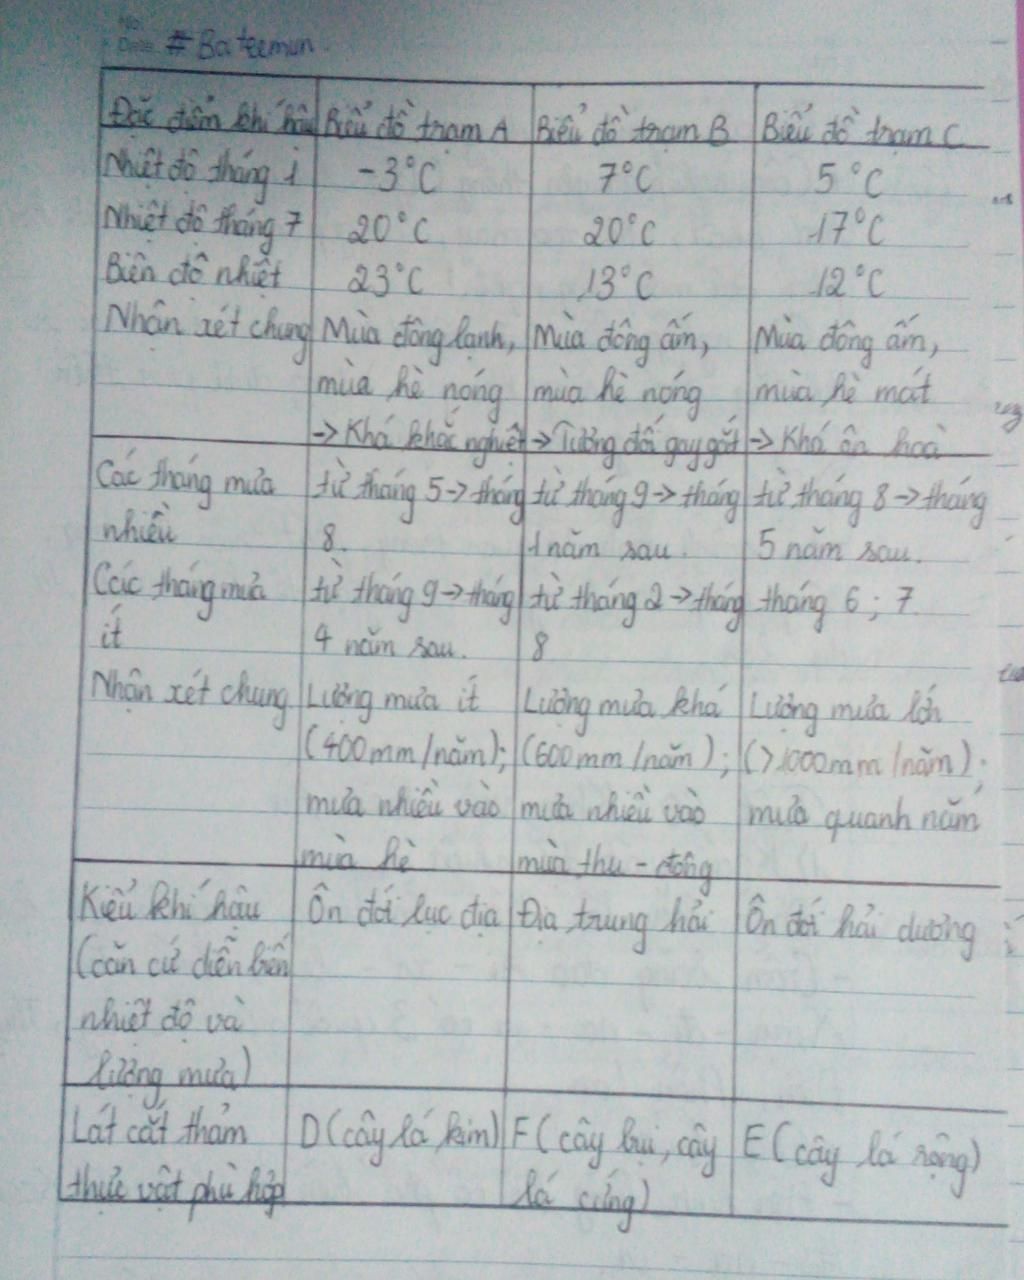 No.
Date # Bateemun
Đặc điểm khí hậu Biểu đồ trạm A Biểu đồ trạm B Biểu đồ trạm C
Nhiệt độ tháng 1 -3°C 7°C 5°C
Nhiệt độ tháng 7 20°C 20°C 17°C
Biên độ nhiệt 23°C 13°C 12°C
Nhận xét chung Mùa đông lạnh, Mùa đông ấm, Mùa đông ấm,
mùa hè nóng mùa hè nóng mùa hè mát
-> Khá khắc nghiệt -> Tương đối gay gắt -> Khá ôn hoà
Các tháng mưa từ tháng 5 -> tháng từ tháng 9 -> tháng từ tháng 8 -> tháng
nhiều 8. 1 năm sau. 5 năm sau.
Các tháng mưa từ tháng 9 -> tháng từ tháng 2 -> tháng tháng 6 ; 7.
ít 4 năm sau. 8
Nhận xét chung Lượng mưa ít Lượng mưa khá Lượng mưa lớn
(400mm/năm); (600mm/năm); (>1000mm/năm);
mưa nhiều vào mưa nhiều vào mưa quanh năm
mùa hè mùa thu - đông
Kiểu khí hậu Ôn đới lục địa Địa trung hải Ôn đới hải dương
(căn cứ diễn biến
nhiệt độ và
lượng mưa)
Lát cắt thảm D (cây lá kim) F (cây bụi, cây E (cây lá rộng)
thực vật phù hợp lá cứng)